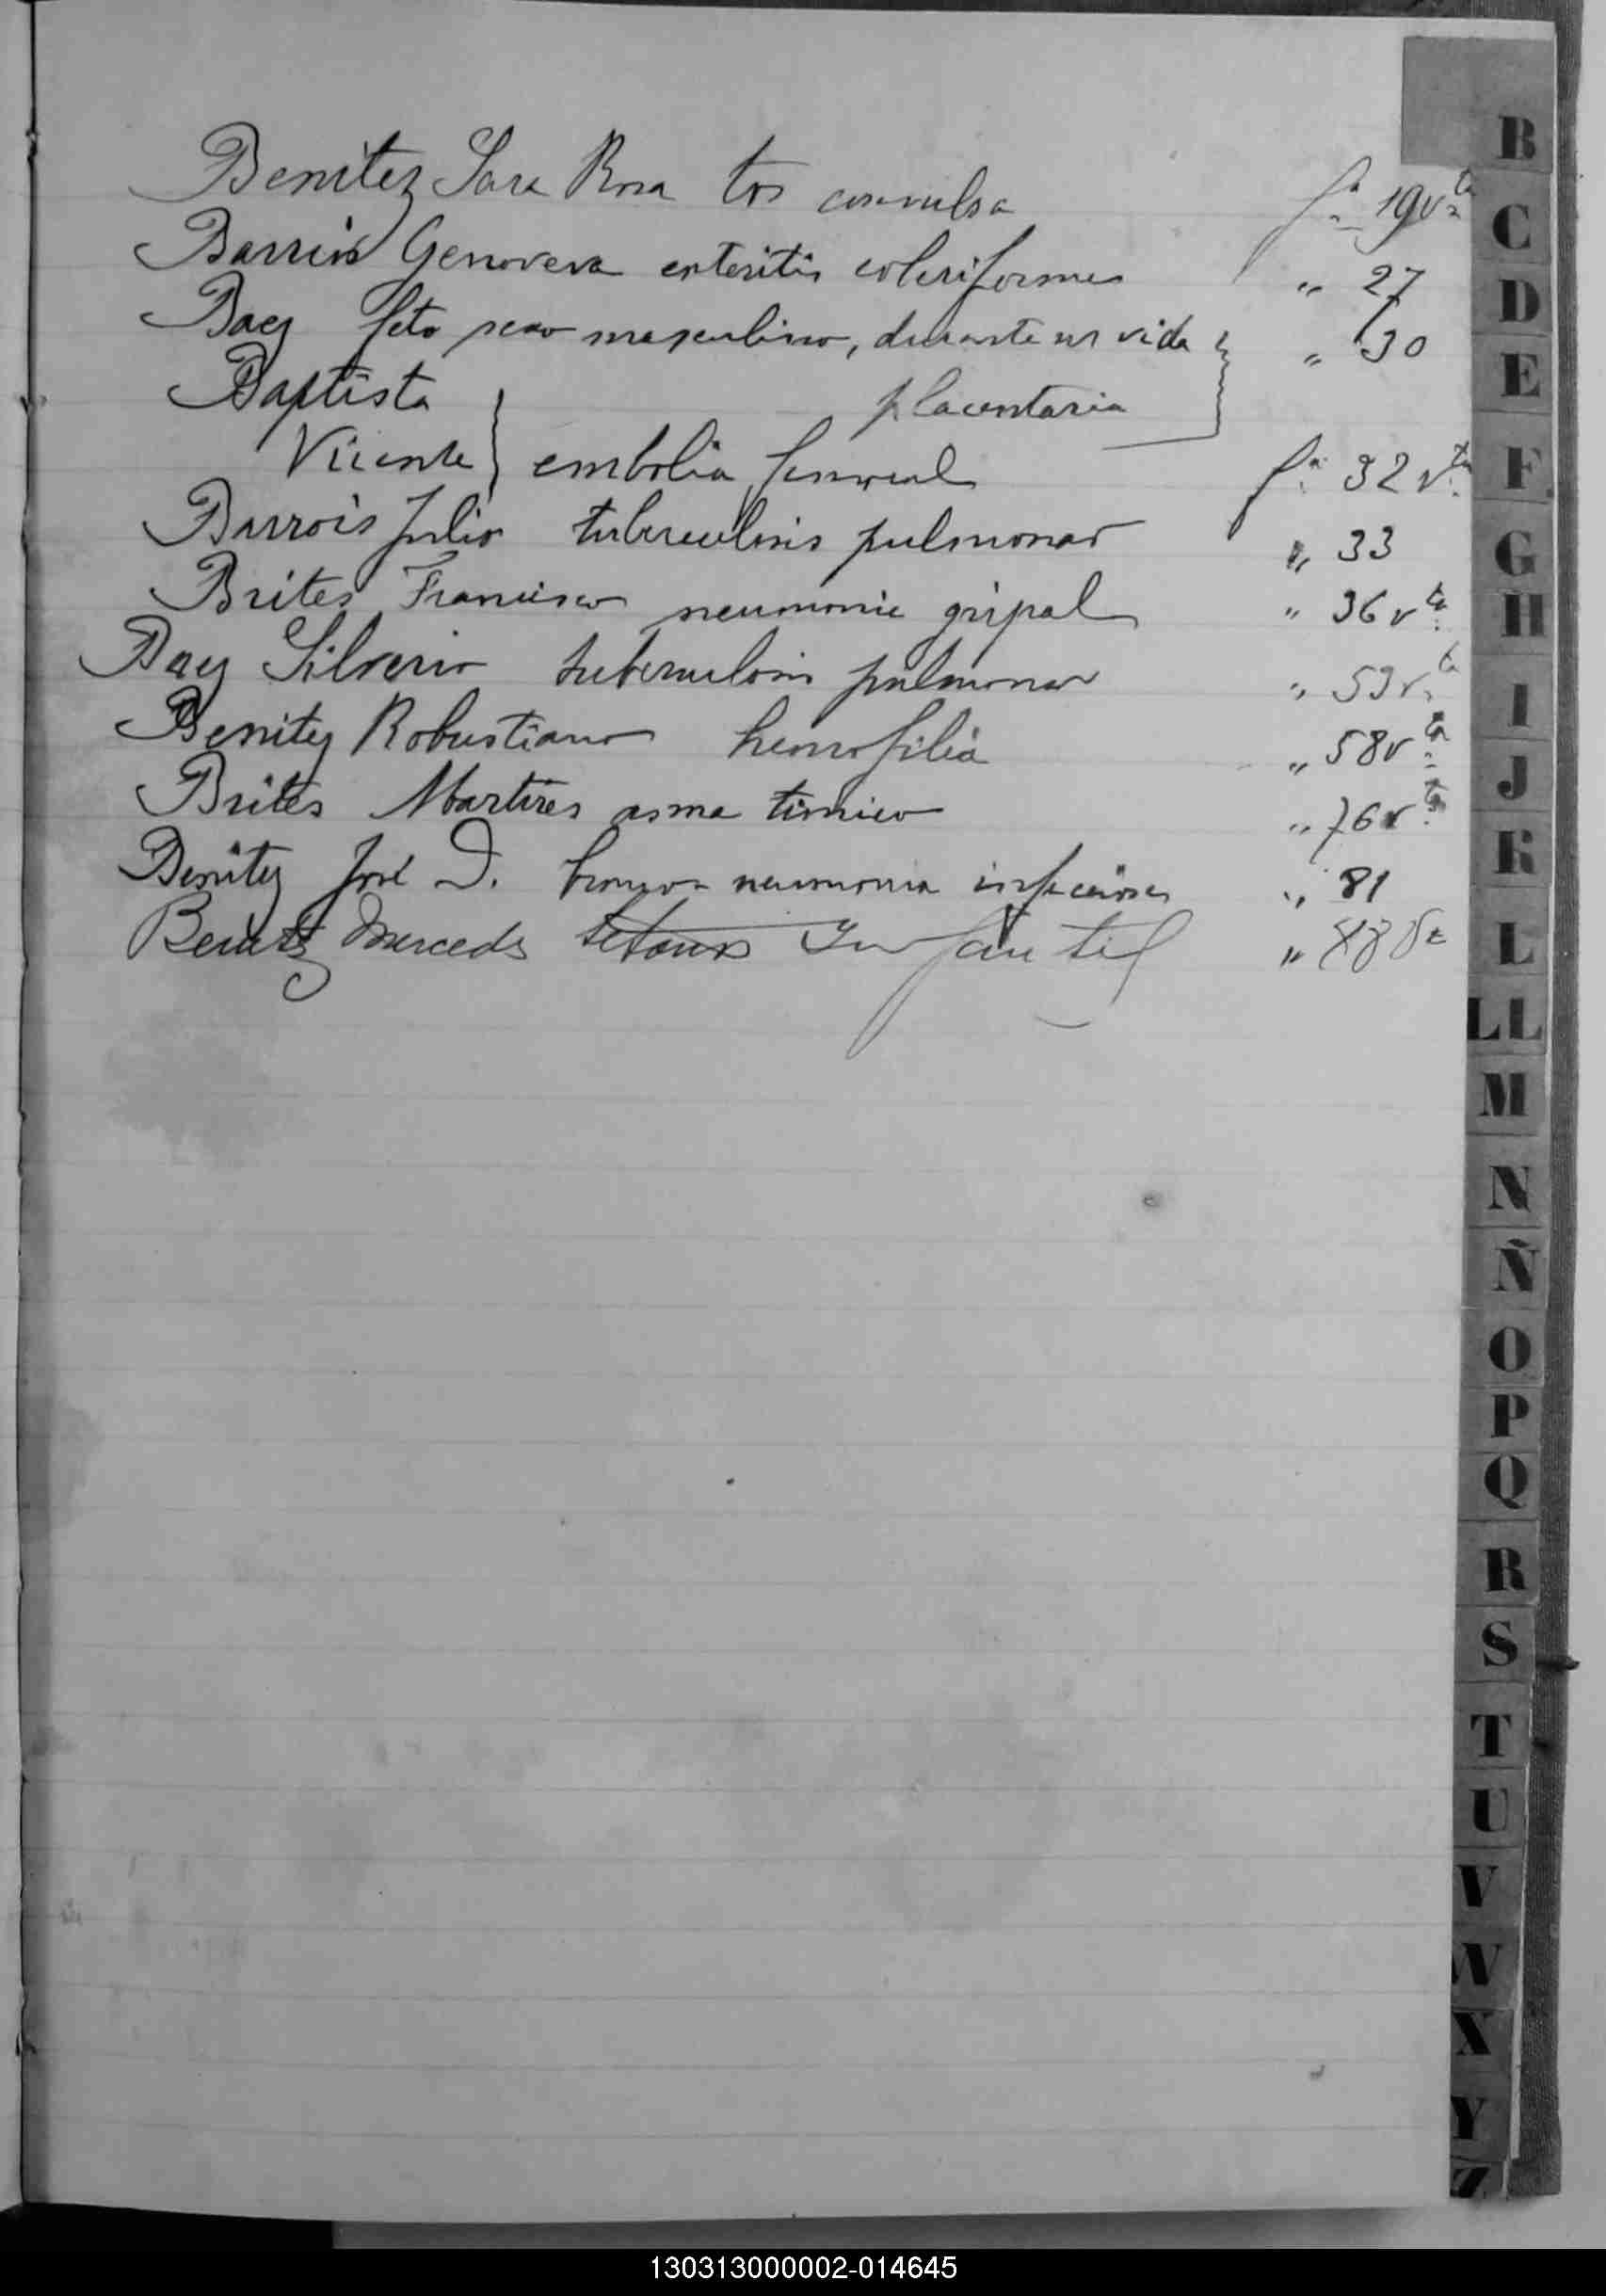 Benitez Sara Rosa tos convulsa fª 19vta
Barrios Genoveva enteritis coleriformes " 27
Baez feto sexo masculino, durante su vida " 30
Baptista placentaria
Vicente embolia fª 32 vta
Barrois Julio tuberculosis pulmonar " 33
Brites Francisco neumonia gripal " 36 vta
Baez Silverio tuberculosis pulmonar " 53 vta
Benitez Robustiano hemofilia " 58 vta
Brites Martires asma timico " 76 vta
Benitez José D. bronco-neumonia infecciosa " 81
Benitez Mercedes tetanos Infantil "
B
C
D
E
F
G
H
I
J
K
L
LL
M
N
Ñ
O
P
Q
R
S
T
U
V
W
X
Y
Z
130313000002-014645